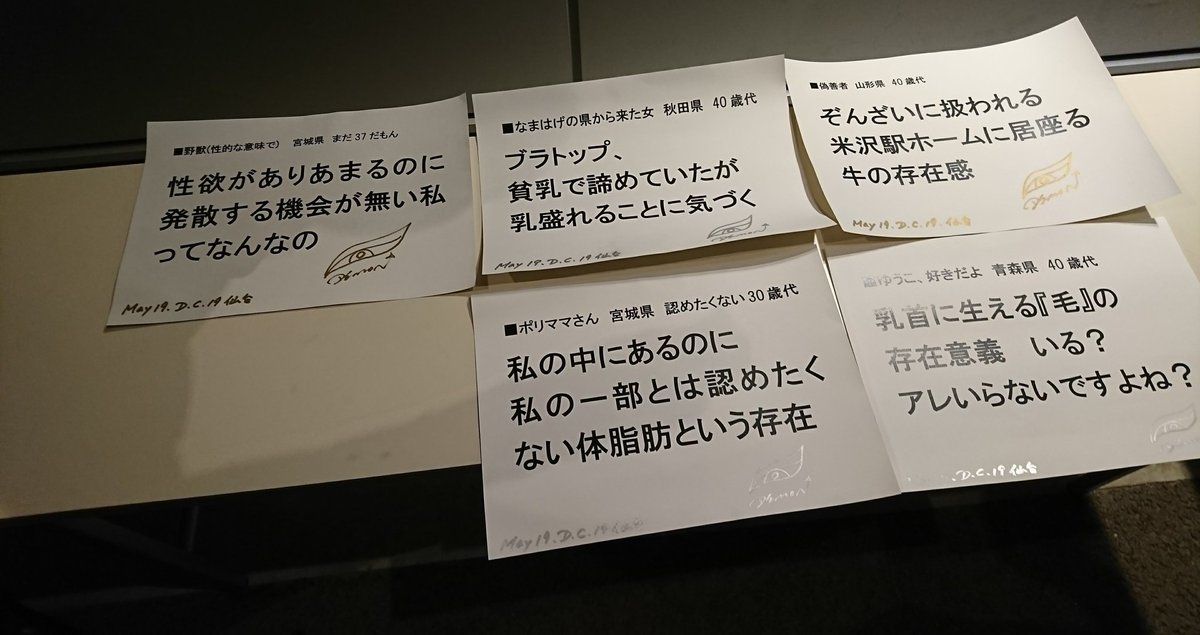 ■野獣(性的な意味で) 宮城県 まだ37だもん
性欲がありあまるのに
発散する機会が無い私
ってなんなの
May 19. D.C.19 仙台
■なまはげの県から来た女 秋田県 40歳代
ブラトップ、
貧乳で諦めていたが
乳盛れることに気づく
May 19. D.C.19 仙台
■偽善者 山形県 40歳代
ぞんざいに扱われる
米沢駅ホームに居座る
牛の存在感
May 19. D.C.19. 仙台
■ポリママさん 宮城県 認めたくない30歳代
私の中にあるのに
私の一部とは認めたく
ない体脂肪という存在
May 19. D.C.19 仙台
ゆうこ、好きだよ 青森県 40歳代
乳首に生える『毛』の
存在意義 いる?
アレいらないですよね?
.D.C.19 仙台